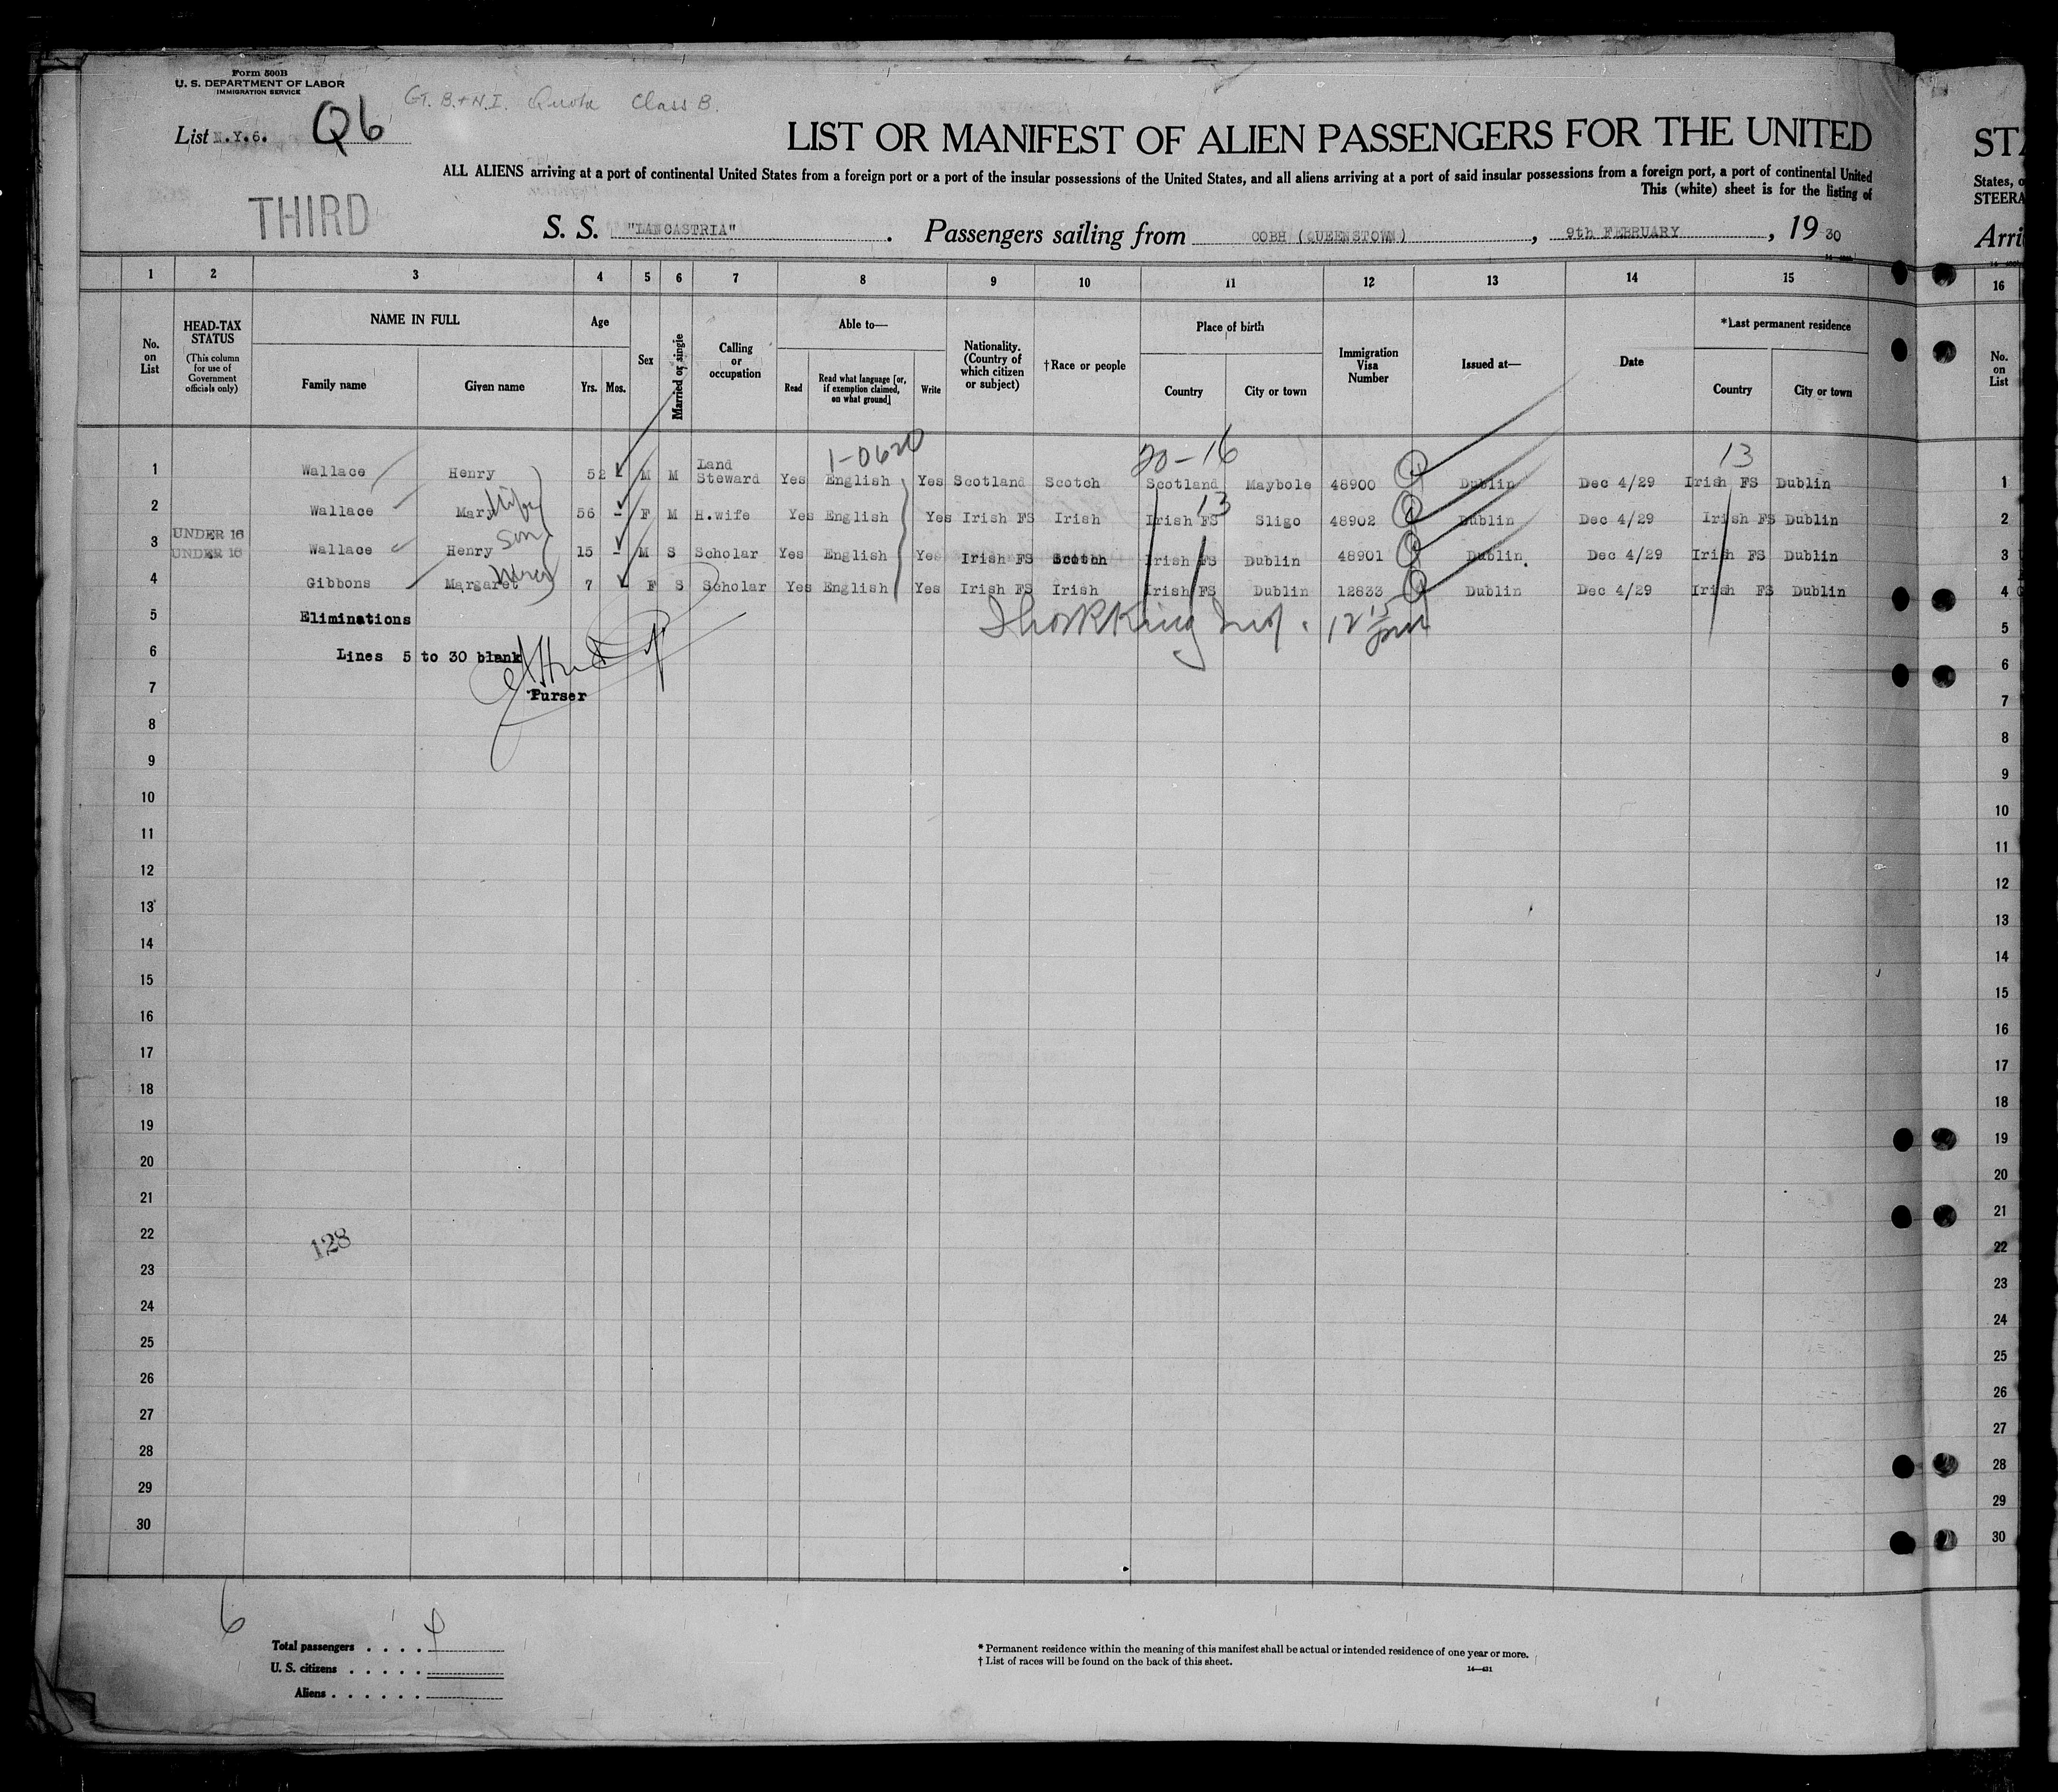 Form 500B
U. S. DEPARTMENT OF LABOR
IMMIGRATION SERVICE
Gt. B. + N.I. Quota Class B.
List N.Y.6. Q6
LIST OR MANIFEST OF ALIEN PASSENGERS FOR THE UNITED
ST
ALL ALIENS arriving at a port of continental United States from a foreign port or a port of the insular possessions of the United States, and all aliens arriving at a port of said insular possessions from a foreign port, a port of continental United
This (white) sheet is for the listing of
States, o
STEERA
THIRD
S. S. "LANCASTRIA". Passengers sailing from COBH (QUEENSTOWN), 9th FEBRUARY, 19 30
Arri
1 2 3 4 5 6 7 8 9 10 11 12 13 14 15 16
No. on List
HEAD-TAX STATUS
(This column for use of Government officials only)
NAME IN FULL
Family name Given name
Age
Yrs. Mos.
Sex
Married or single
Calling or occupation
Able to—
Read
Read what language [or, if exemption claimed, on what ground]
Write
Nationality. (Country of which citizen or subject)
†Race or people
Place of birth
Country City or town
Immigration Visa Number
Issued at—
Date
*Last permanent residence
Country City or town
No. on List
1-0620 20-16 13
1 Wallace Henry 52 M M Land Steward Yes English Yes Scotland Scotch Scotland Maybole 48900 Dublin Dec 4/29 Irish FS Dublin 1
2 Wallace Mary Wife 56 - F M H.wife Yes English Yes Irish FS Irish Irish FS 13 Sligo 48902 Dublin Dec 4/29 Irish FS Dublin 2
UNDER 16
3 Wallace Henry Son 15 - M S Scholar Yes English Yes Irish FS Scotch Irish FS Dublin 48901 Dublin. Dec 4/29 Irish FS Dublin 3
UNDER 16
4 Gibbons Margaret Niece 7 F S Scholar Yes English Yes Irish FS Irish Irish FS Dublin 12833 Dublin Dec 4/29 Irish FS Dublin 4
5 Eliminations 5
6 Lines 5 to 30 blank 6
Purser
7 7
8 8
9 9
10 10
11 11
12 12
13 13
14 14
15 15
16 16
17 17
18 18
19 19
20 20
21 21
22 22
128
23 23
24 24
25 25
26 26
27 27
28 28
29 29
30 30
6
Total passengers . . . .
U. S. citizens . . . . .
Aliens . . . . . .
* Permanent residence within the meaning of this manifest shall be actual or intended residence of one year or more.
† List of races will be found on the back of this sheet.
14—421